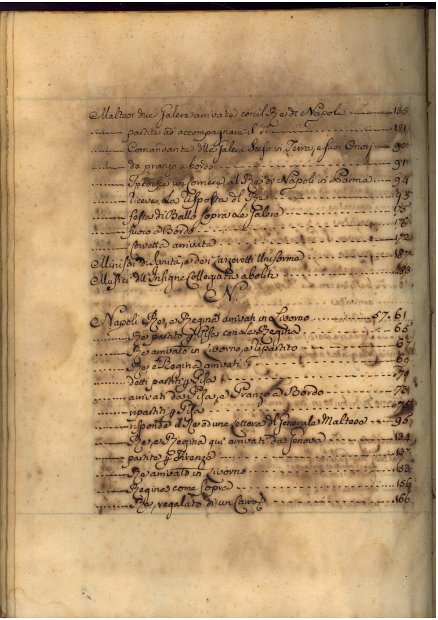 Maltesi due Galere arrivate con il Re di Napoli 135
partite ad accompagnare il di 181
Comandante delle Galere sceso in Terra, e suoi Onori 90
da pranzo a bordo 91
Spedisce un Corriere al Re di Napoli in Parma 94
riceve la risposta del Re 95
festa di Ballo sopra le Galere 175
fuoco a Bordo 176
Corvetta arrivata 172
Ministri di Sanità, e de Lazzeretti Uniforme 187
Musici dell'Insigne Collegiata aboliti 183
N.
Napoli Re, e Regina arrivati in Livorno 57. 61
Re partito per Pisa con la Regina 65
Re arrivato in Livorno, e ripartito 67
Re e Regina arrivati
detti partiti per Pisa 70
arrivati da Pisa, e Pranzo a Bordo 73
ripartiti per Pisa
risponde il Re ad una lettera del Generale Maltese 95
Re, e Regina qui arrivati da Genova 134
partiti per Firenze 137
Re arrivato in Livorno 153
Regina come sopra 156
Re, regalato di un Cavo 166